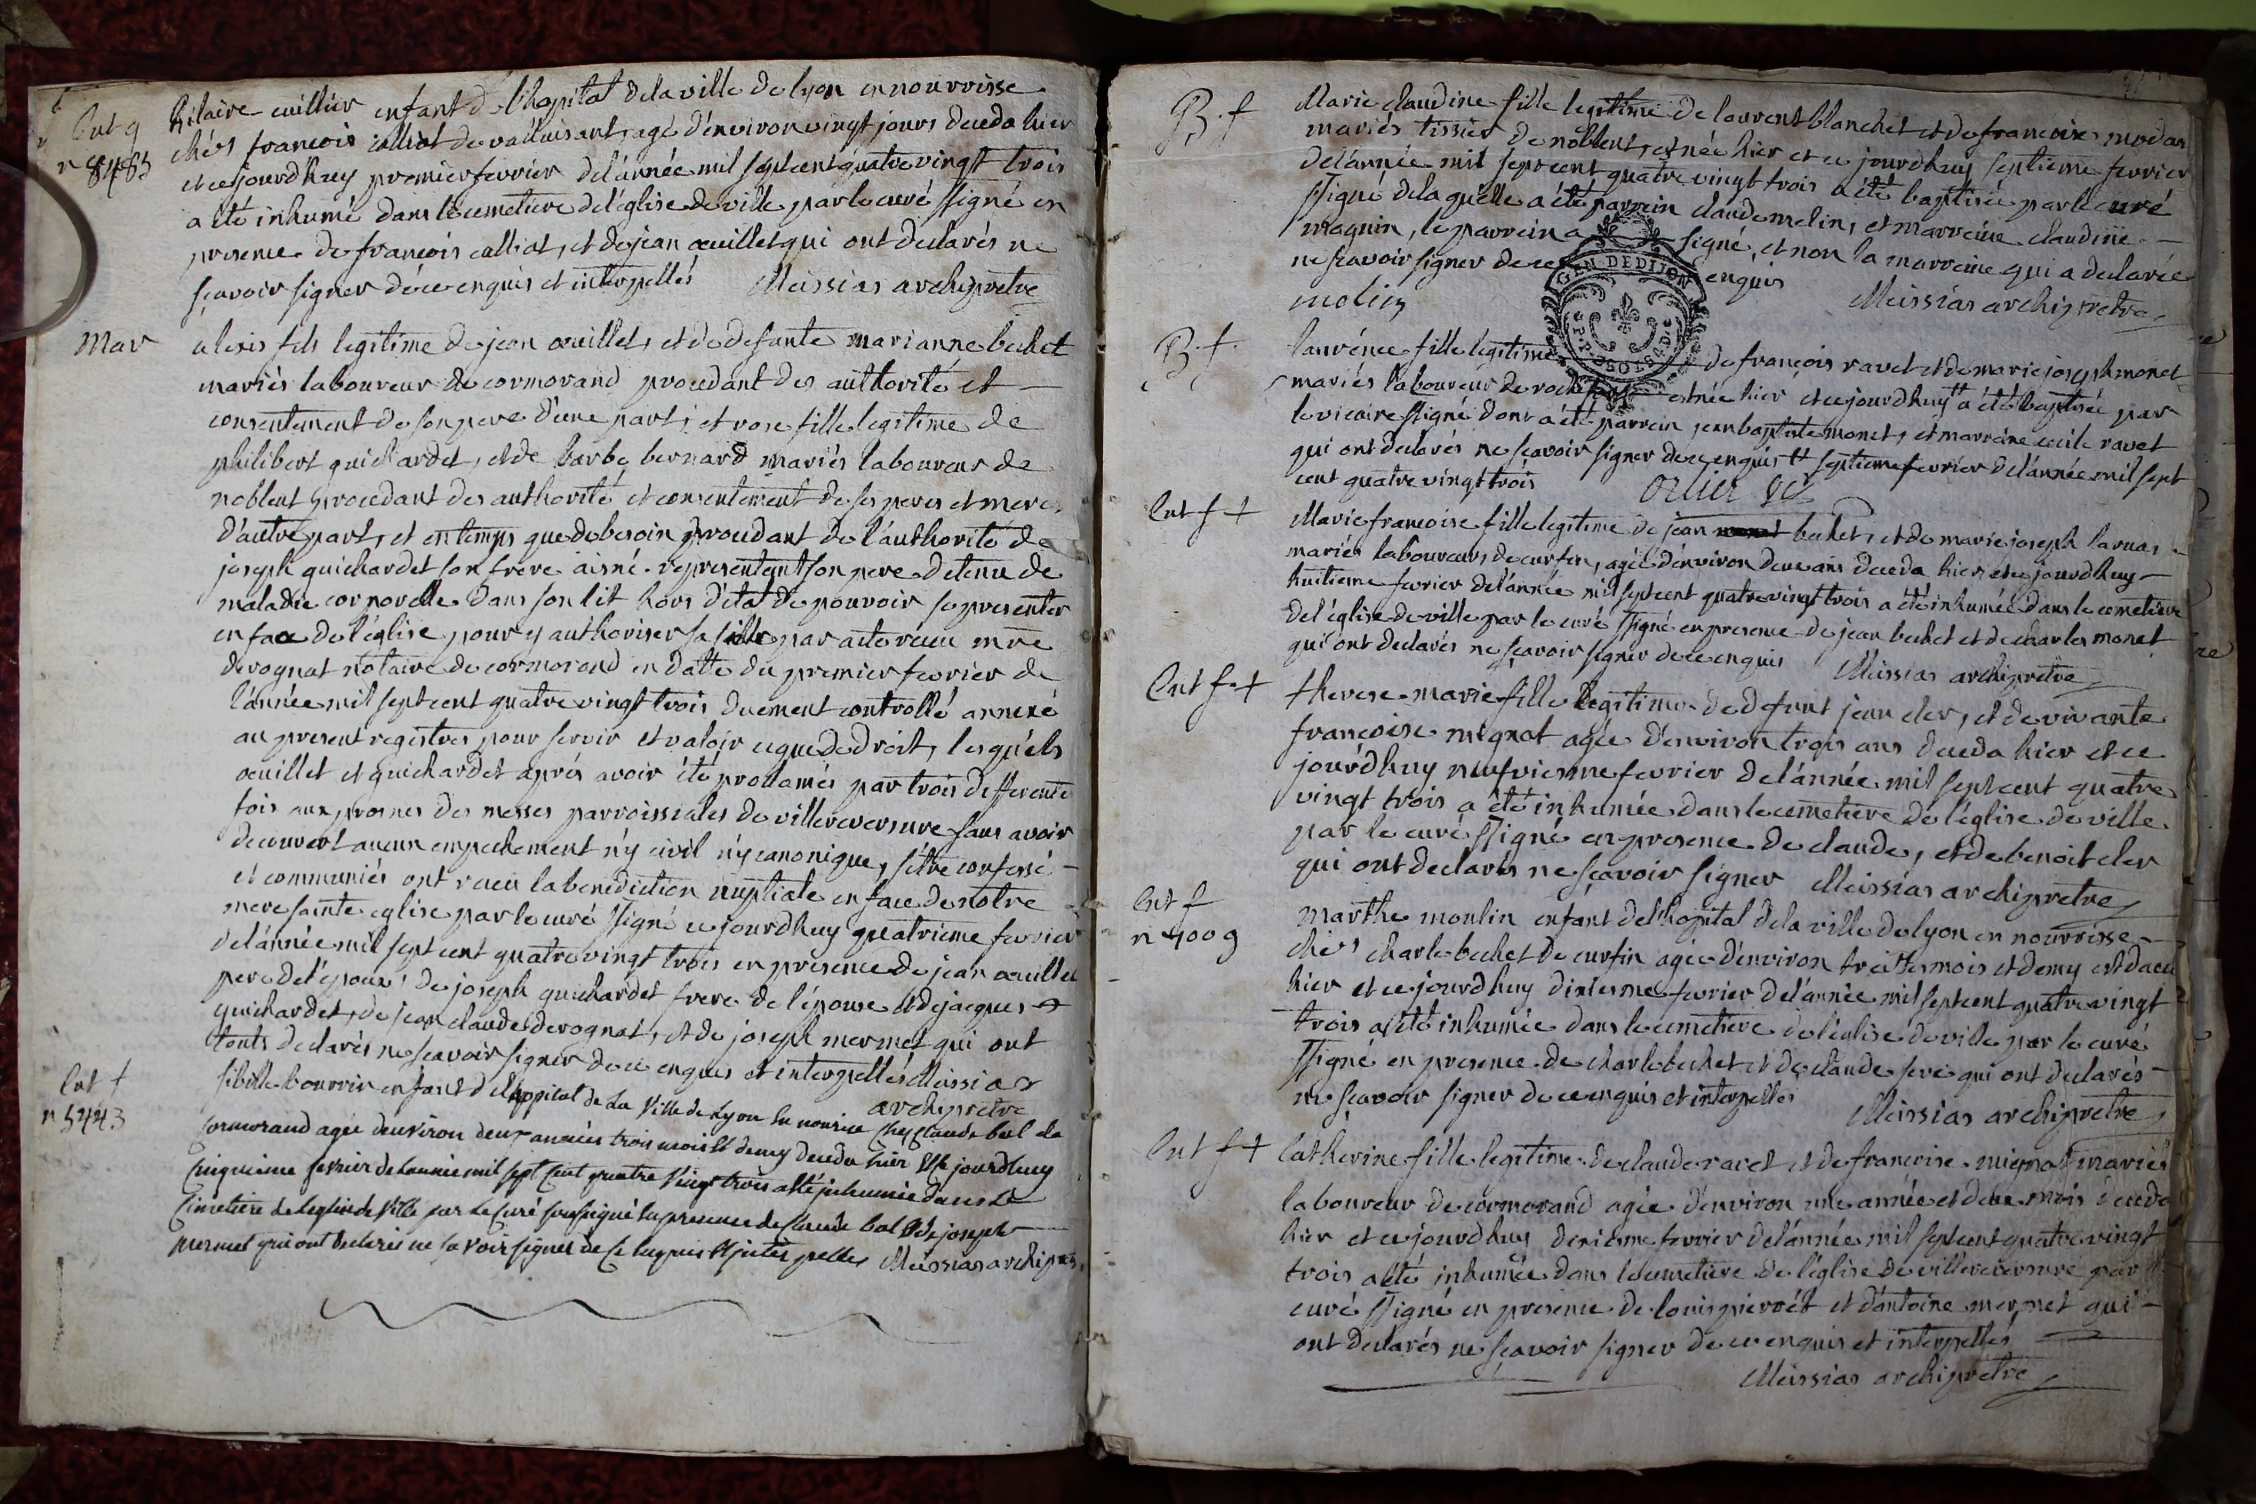 Ent g
n 8483
hilaire cuillier enfant de l'hopital de la ville de lyon en nourrisse
chés francois calliot de valluisant, agé d'environ vingt jours deceda hier
et cejourdhuy premier fevrier de l'année mil sept cent quatre vingt trois
a été inhumé dans le cemetiere de l'église de ville par le curé ssigné en
presence de francois calliot, et de jean œuillet qui ont declarés ne
scavoir signer de ce enquis et interpellés Meissias archipretre
Mar
alexis fils legitime de jean œuillet, et de defunte marianne bechet
mariés laboureur de cormorand procedant des authorité et
consentement de son pere d'une part; et rose fille legitime de
philibert guichardet, et de barbe bernard mariés laboureur de
noblent procedant des authorité et consentement de ses peres et mere
d'autre part, et en temps que de besoin procedant de l'authorité de
joseph guichardet son frere aisné representant son pere detenu de
maladie corporelle dans son lit hors d'etat de pouvoir se presenter
en face de l'église pour y authoriser sa fille par acte recu mre
derognat notaire de cormorand en datte du premier fevrier de
l'année mil sept cent quatre vingt trois duement controllé annexé
au present registres pour servir et valoir ce que de droit, lesquels
œuillet et guichardet aprés avoir été proclamés par trois differente
fois aux prosnes des messes parroissiales de villereversure sans avoir
decouvert aucun empechement n'y civil n'y canonique, s'etre confessé
et communiés ont recu la benediction nuptiale en face de notre
mere sainte eglise par le curé ssigné ce jourdhuy quatrieme fevrier
de l'année mil sept cent quatre vingt trois en presence de jean œuillet
pere de l'epoux, de joseph guichardet frere de l'épouse et de jacques
guichardet, de jean claude derognat, et de joseph mermet qui ont
touts declarés ne scavoir signer de ce enquis et interpellés Meissias
archipretre
Ent f
n 5443
sibille bourrin enfant de l'hopital de La Ville de Lyon En nourice Chez Claude bal de
Cormorand agée denviron deux années trois mois Et demy deceda hier Et Ce jourdhuy
Cinquieme fevrier de Lannée mil sept Cent quatre Vingt trois a été inhumée dans Le
Cimetiere de Leglise de Ville par Le Curé soussigné En presence de Claude bal Et de joseph
mermet qui ont declarés ne savoir signer de Ce Enquis Et interpellés Meissias archipretre
B. f
Marie claudine fille legitime de laurent blanchet et de francoise modas
mariés tissier de noblent, est née hier et ce jourdhuy septieme fevrier
de l'année mil sept cent quatre vingt trois a été baptisée par le curé
ssigné de laquelle a été parrein claude molin, et marreine claudine
magnin, le parrein a signé, et non la marreine qui a declarée
ne scavoir signer de ce enquis
molin Meissias archipretre
GEN DE DIJON
B. f.
laurence fille legitime de francois ravet et de marie joseph monet
mariés laboureur de rochefort est née hier et ce jourdhuy a été baptisée par
le vicaire ssigné dont a été parrein jean baptiste monet, et marreine cecile ravet
qui ont declarés ne scavoir signer de ce enquis septieme fevrier de l'année mil sept
cent quatre vingt trois
Ent f +
Marie francoise fille legitime de jean bechet, et de marie joseph
mariés laboureurs de curfin, agée d'environ deux ans deceda hier et ce jourdhuy
huitieme fevrier de l'année mil sept cent quatre vingt trois a été inhumée dans le cemetiere
de l'église de ville par le curé ssigné en presence de jean bechet et de charles monet
qui ont declarés ne scavoir signer de ce enquis Meissias archipretre
Ent f +
therese marie fille legitime de defunt jean cler, et de vivante
francoise mignot agée d'environ trois ans deceda hier et ce
jourdhuy neufvieme fevrier de l'année mil sept cent quatre
vingt trois a été inhumée dans le cemetiere de l'église de ville
par le curé ssigné en presence de claude, et de benoit cler
qui ont declarés ne scavoir signer Meissias archipretre
Ent f
n 4009
marthe moulin enfant de l'hopital de la ville de lyon en nourrisse
chés charle bechet de curfin agée d'environ treize mois et demy est
hier et ce jourdhuy dixieme fevrier de l'année mil sept cent quatre vingt
trois a été inhumée dans le cemetiere de l'église de ville par le curé
ssigné en presence de charle bechet et de claude seve qui ont declarés
ne scavoir signer de ce enquis et interpellés Meissias archipretre
Ent f +
Catherine fille legitime de claude ravet et de francoise mignot mariés
laboureur de cormorand agée d'environ une année et deux mois deceda
hier et ce jourdhuy dixieme fevrier de l'année mil sept cent quatre vingt
trois a été inhumée dans le cemetiere de l'église de villereversure par le
curé ssigné en presence de louis pierrét et d'antoine mermet qui
ont declarés ne scavoir signer de ce enquis et interpellés
Meissias archipretre